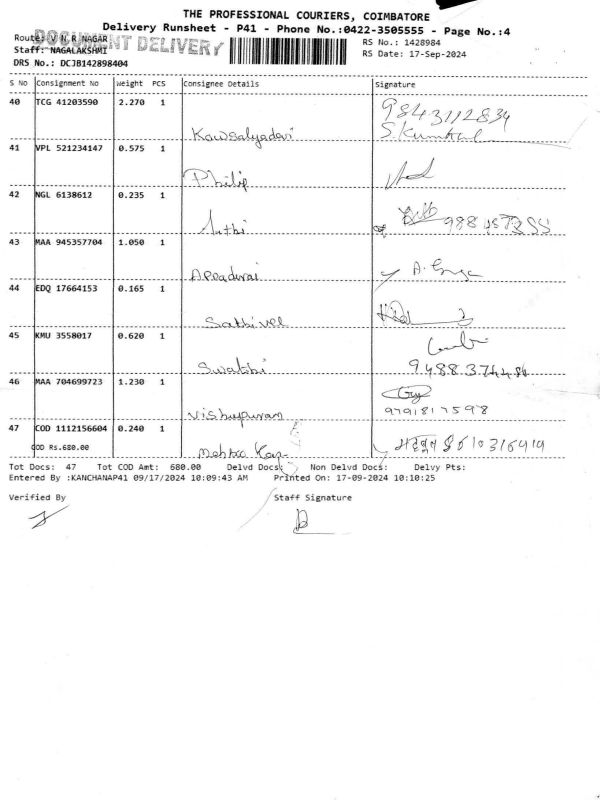 THE PROFESSIONAL COURIERS, COIMBATORE
Delivery Runsheet - P41 - Phone No.:0422-3505555 - Page No.:4
Route: V N R NAGAR
DOCUMENT DELIVERY
RS No.: 1428984
Staff: NAGALAKSHMI
RS Date: 17-Sep-2024
DRS No.: DCJB142898404
S No Consignment No Weight PCS Consignee Details Signature
40 TCG 41203590 2.270 1 9843112834
Kowsalyadevi S.Kumkal
41 VPL 521234147 0.575 1
Philip
42 NGL 6138612 0.235 1
43 MAA 945357704 1.050 1
Appadurai
44 EDQ 17664153 0.165 1
Sakthivel
45 KMU 3558017 0.620 1
Swathi
46 MAA 704699723 1.230 1
Vishnupuram 9791817598
47 COD 1112156604 0.240 1
COD Rs.680.00
Tot Docs: 47 Tot COD Amt: 680.00 Delvd Docs: Non Delvd Docs: Delvy Pts:
Entered By :KANCHANAP41 09/17/2024 10:09:43 AM Printed On: 17-09-2024 10:10:25
Verified By Staff Signature